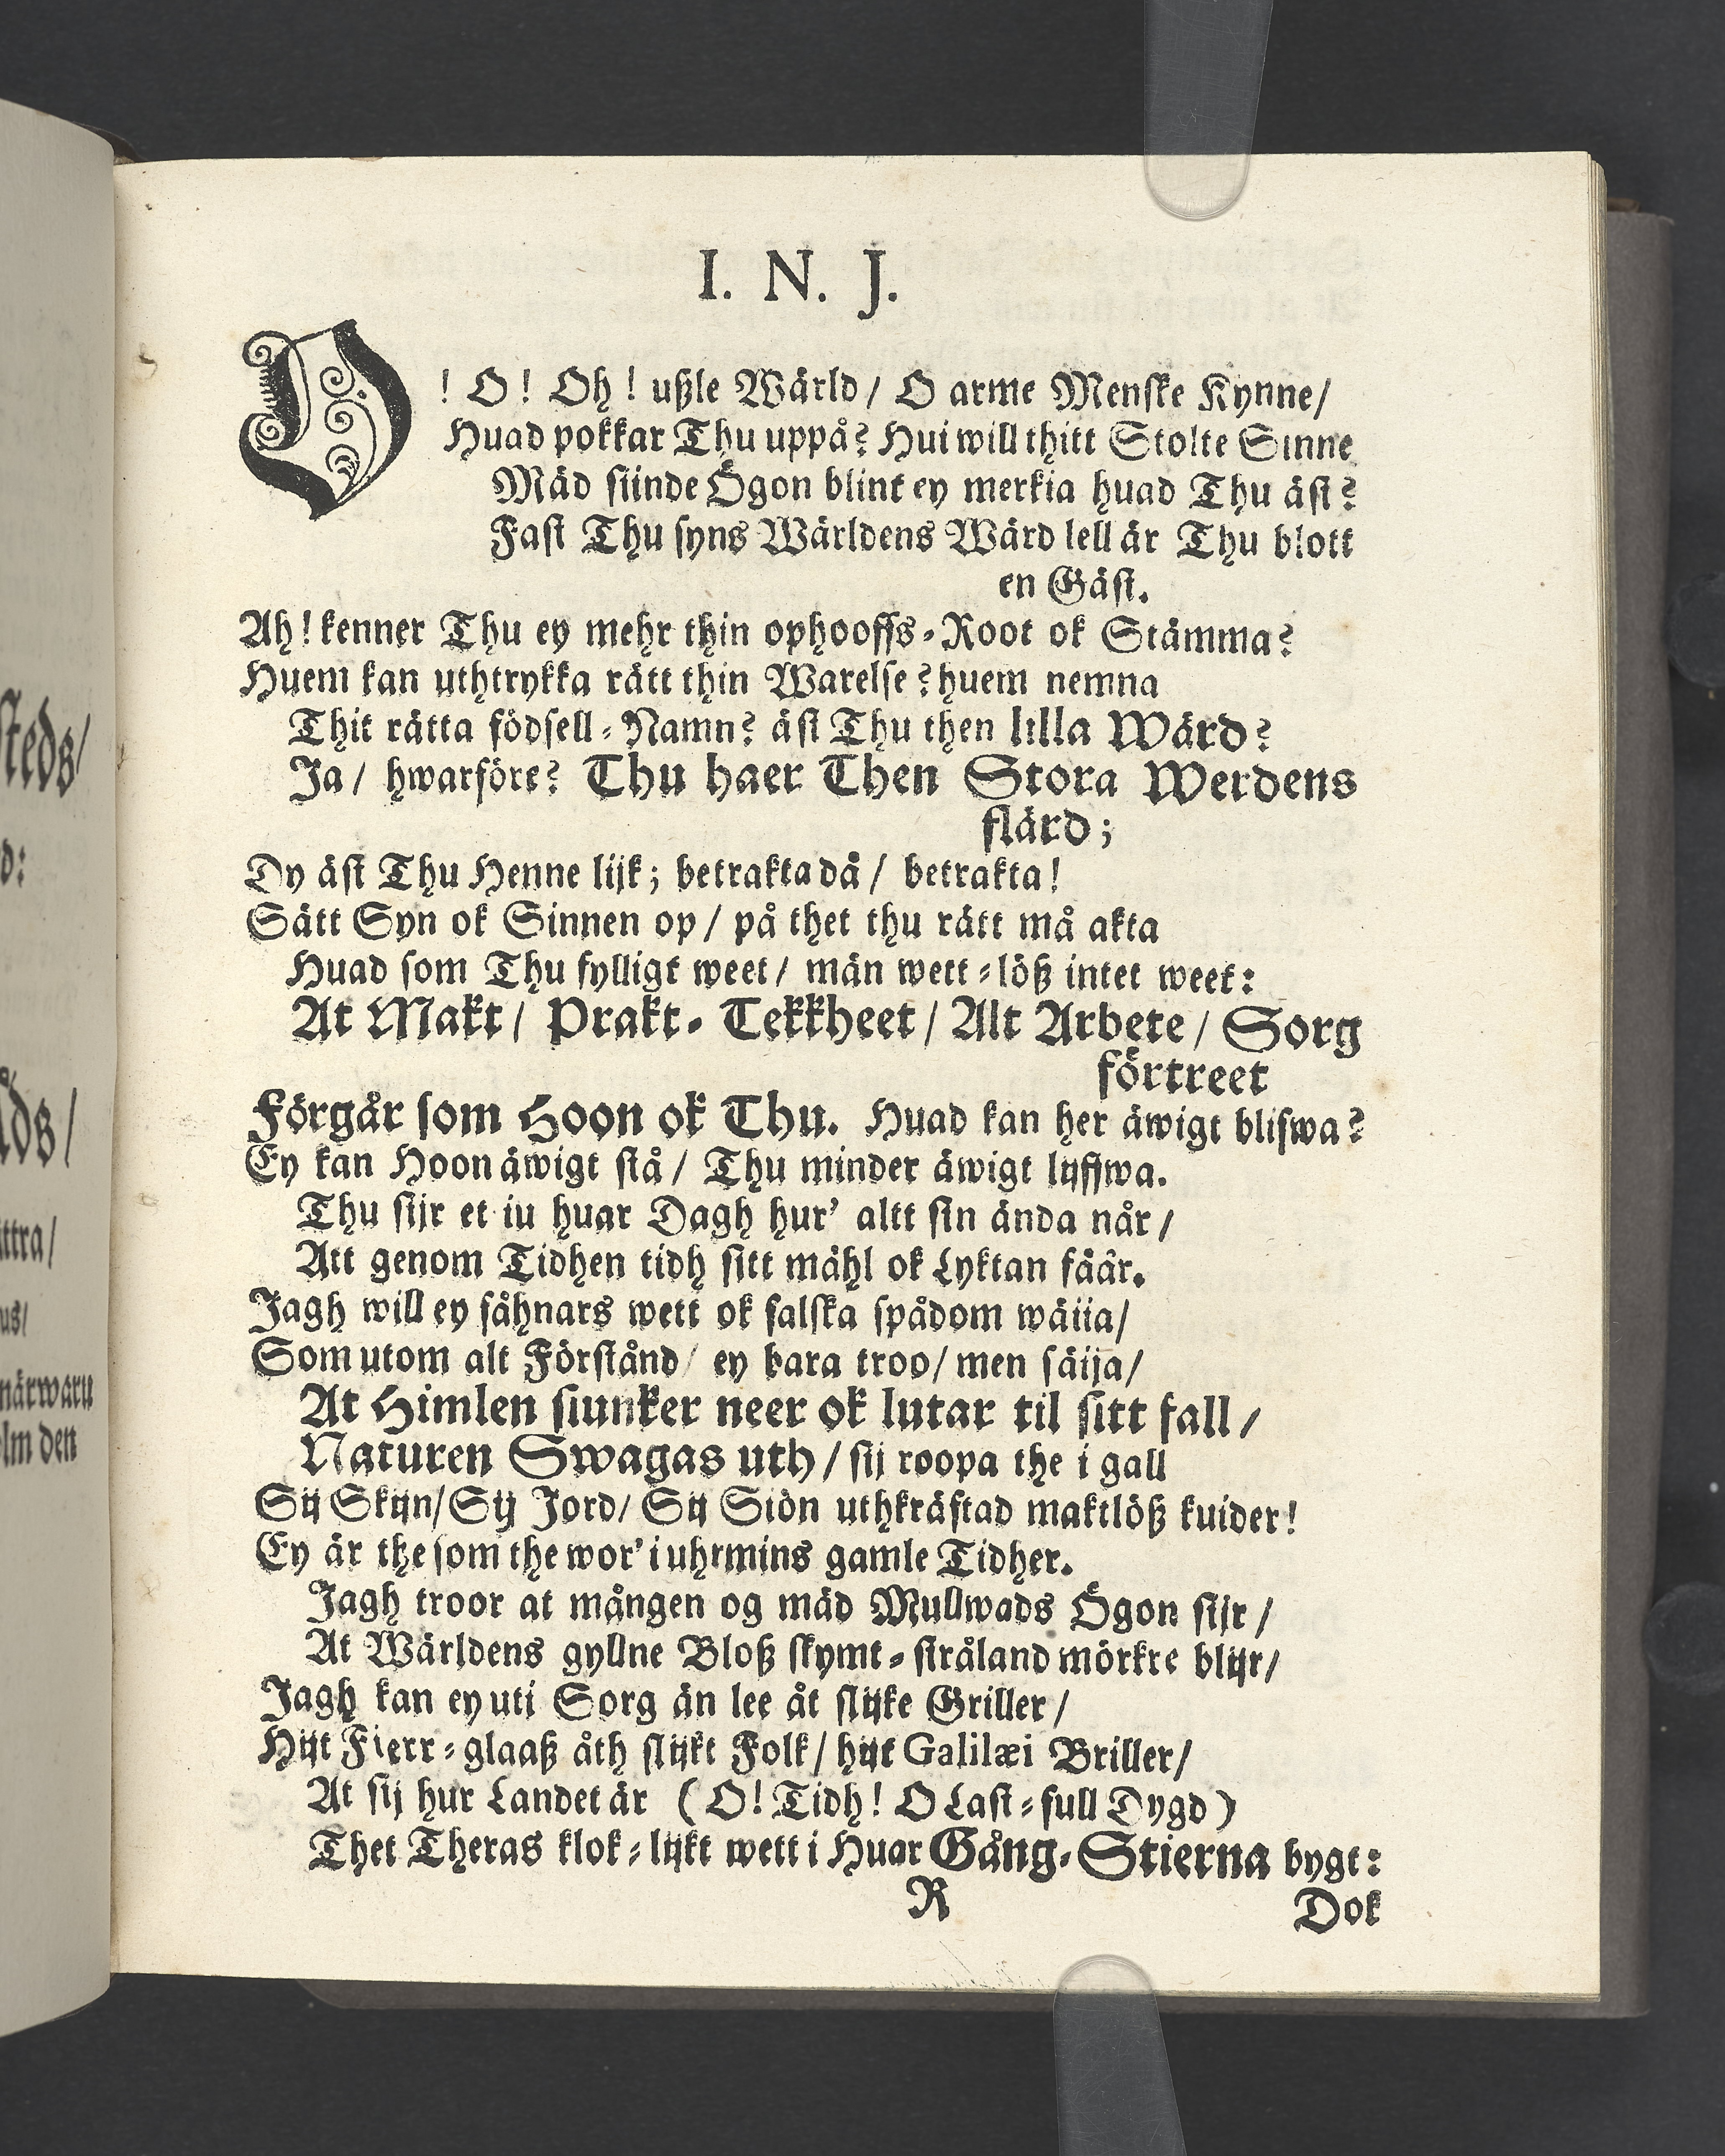 steds/
d:
åds/
ittra/
us/
närwaru
olm den
I. N. J.
O! O! Oh! ußle Wärld/ O arme Menske Kynne/
Huad pokkar Thu uppå? Hui will thitt Stolte Sinne
Mäd siinde Ögon blint ey merkia huad Thu äst?
Fast Thu syns Wärldens Wärd lell är Thu blott
en Gäst.
Ah! kenner Thu ey mehr thin ophooffs-Root ok Stämma?
Huem kan uthtrykka rätt thin Warelse? huem nemna
Thit rätta födsell-Namn? äst Thu then lilla Wärd?
Ja/ hwarföre? Thu haer Then Stora Werdens
flärd;
Dy äst Thu Henne lijk; betrakta då/ betrakta!
Sätt Syn ok Sinnen op/ på thet thu rätt må akta
Huad som Thu fylligt weet/ män wett-löß intet weet:
At Makt/ Prakt- Tekkheet/ Alt Arbete/ Sorg
förtreet
Förgår som Hoon ok Thu. Huad kan her äwigt blifwa?
Ey kan Hoon äwigt stå/ Thu minder äwigt lijffwa.
Thu sijr et iu huar Dagh hur' altt sin ända når/
Att genom Tidhen tidh sitt måhl ok Lyktan fåår.
Jagh will ey såhnars wett ok falska spådom wäiia/
Som utom alt Förstånd/ ey bara troo/ men säija/
At Himlen siunker neer ok lutar til sitt fall/
Naturen Swagas uth/ sij roopa the i gall
Sij Skijn/ Sij Jord/ Sij Siön uthkräftad maktlöß kuider!
Ey är the som the wor' i uhrmins gamle Tidher.
Jagh troor at mången og mäd Mullwads Ögon sijr/
At Wärldens gyllne Bloß skymt-stråland mörkre blijr/
Jagh kan ey uti Sorg än lee åt slijke Griller/
Hijt Fierr-glaaß åth slijkt Folk/ hijt Galilæi Briller/
At sij hur Landet är (O! Tidh! O Last-full Dygd)
Thet Theras klok-lijkt wett i Huar Gång-Stierna bygt:
R
Dok